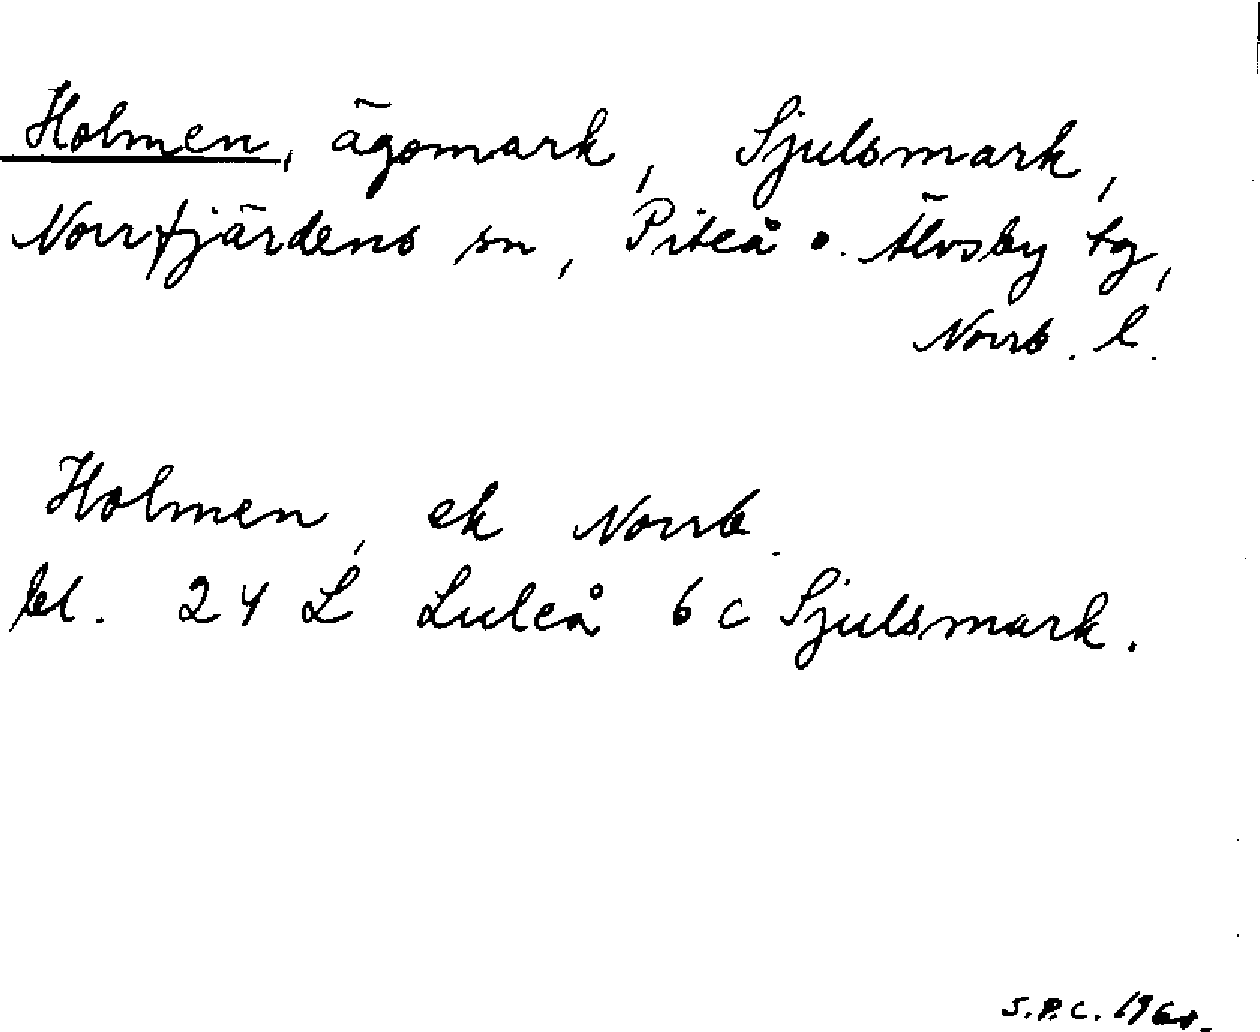 Holmen, ägomark, Sjulsmark,
Norrfjärdens sn, Piteå o. Älvsby tg,
Norrb. l.
Holmen, ek Norrb.
bl. 24 L Luleå 6 c Sjulsmark.
S.P.C.